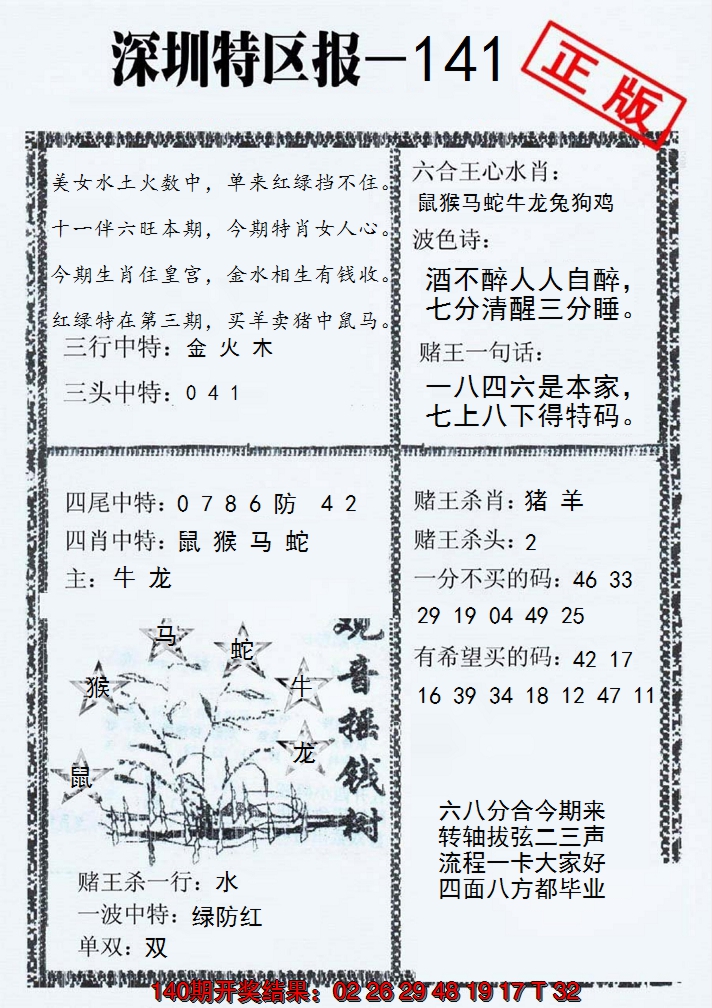 深圳特区报—141
正版
美女水土火数中，单来红绿挡不住。
十一伴六旺本期，今期特肖女人心。
今期生肖住皇宫，金水相生有钱收。
红绿特在第三期，买羊卖猪中鼠马。
三行中特：金 火 木
三头中特：0 4 1
六合王心水肖：
鼠猴马蛇牛龙兔狗鸡
波色诗：
酒不醉人人自醉，
七分清醒三分睡。
赌王一句话：
一八四六是本家，
七上八下得特码。
四尾中特：0 7 8 6 防 4 2
四肖中特：鼠 猴 马 蛇
主：牛 龙
赌王杀肖：猪 羊
赌王杀头：2
一分不买的码：46 33
29 19 04 49 25
有希望买的码：42 17
16 39 34 18 12 47 11
观音摇钱树
马
蛇
猴
牛
龙
鼠
赌王杀一行：水
一波中特：绿防红
单双：双
六八分合今期来
转轴拔弦二三声
流程一卡大家好
四面八方都毕业
140期开奖结果：02 26 29 48 19 17 T 32